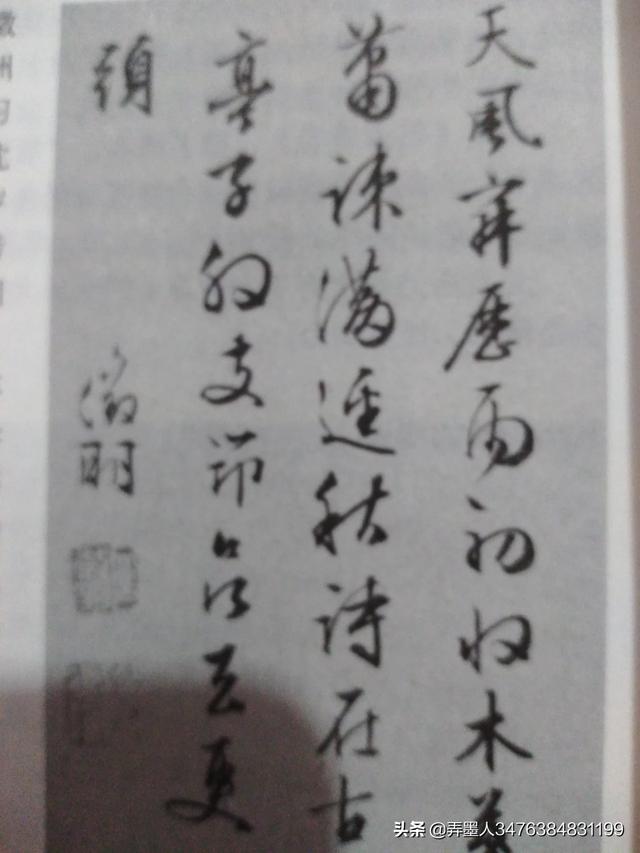 天風寂歷雨初收木葉
蕭疎滿逕秋詩在古
亭子支筇更
頭
徵明
头条 @弄墨人3476384831199